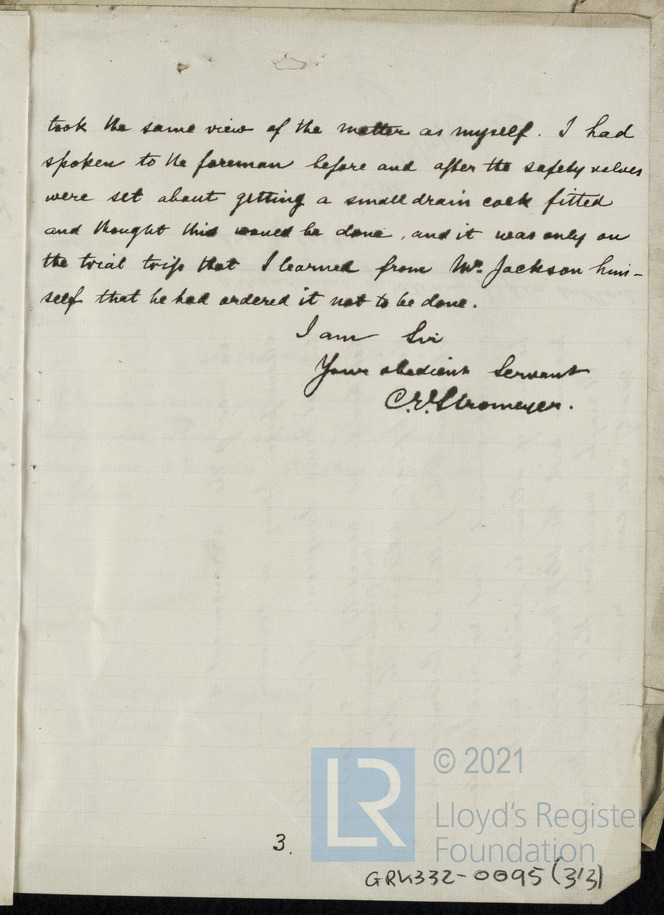 took the same view of the matter as myself. I had
spoken to the foreman before and after the safety valves
were set about getting a small drain cock fitted
and thought this would be done, and it was only on
the trial trip that I learned from Mr. Jackson him-
self that he had ordered it not to be done.
I am Sir
Your obedient Servant
C.E. Stromeyer.
3.
LR
© 2021
Lloyd's Register
Foundation
GRK332-0095 (3/3)